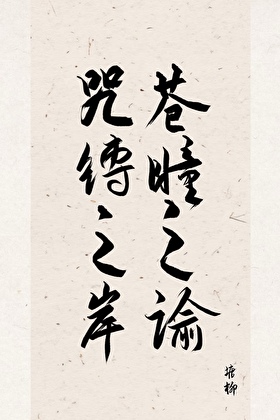 苍瞳之论
咒缚之岸
塘柳